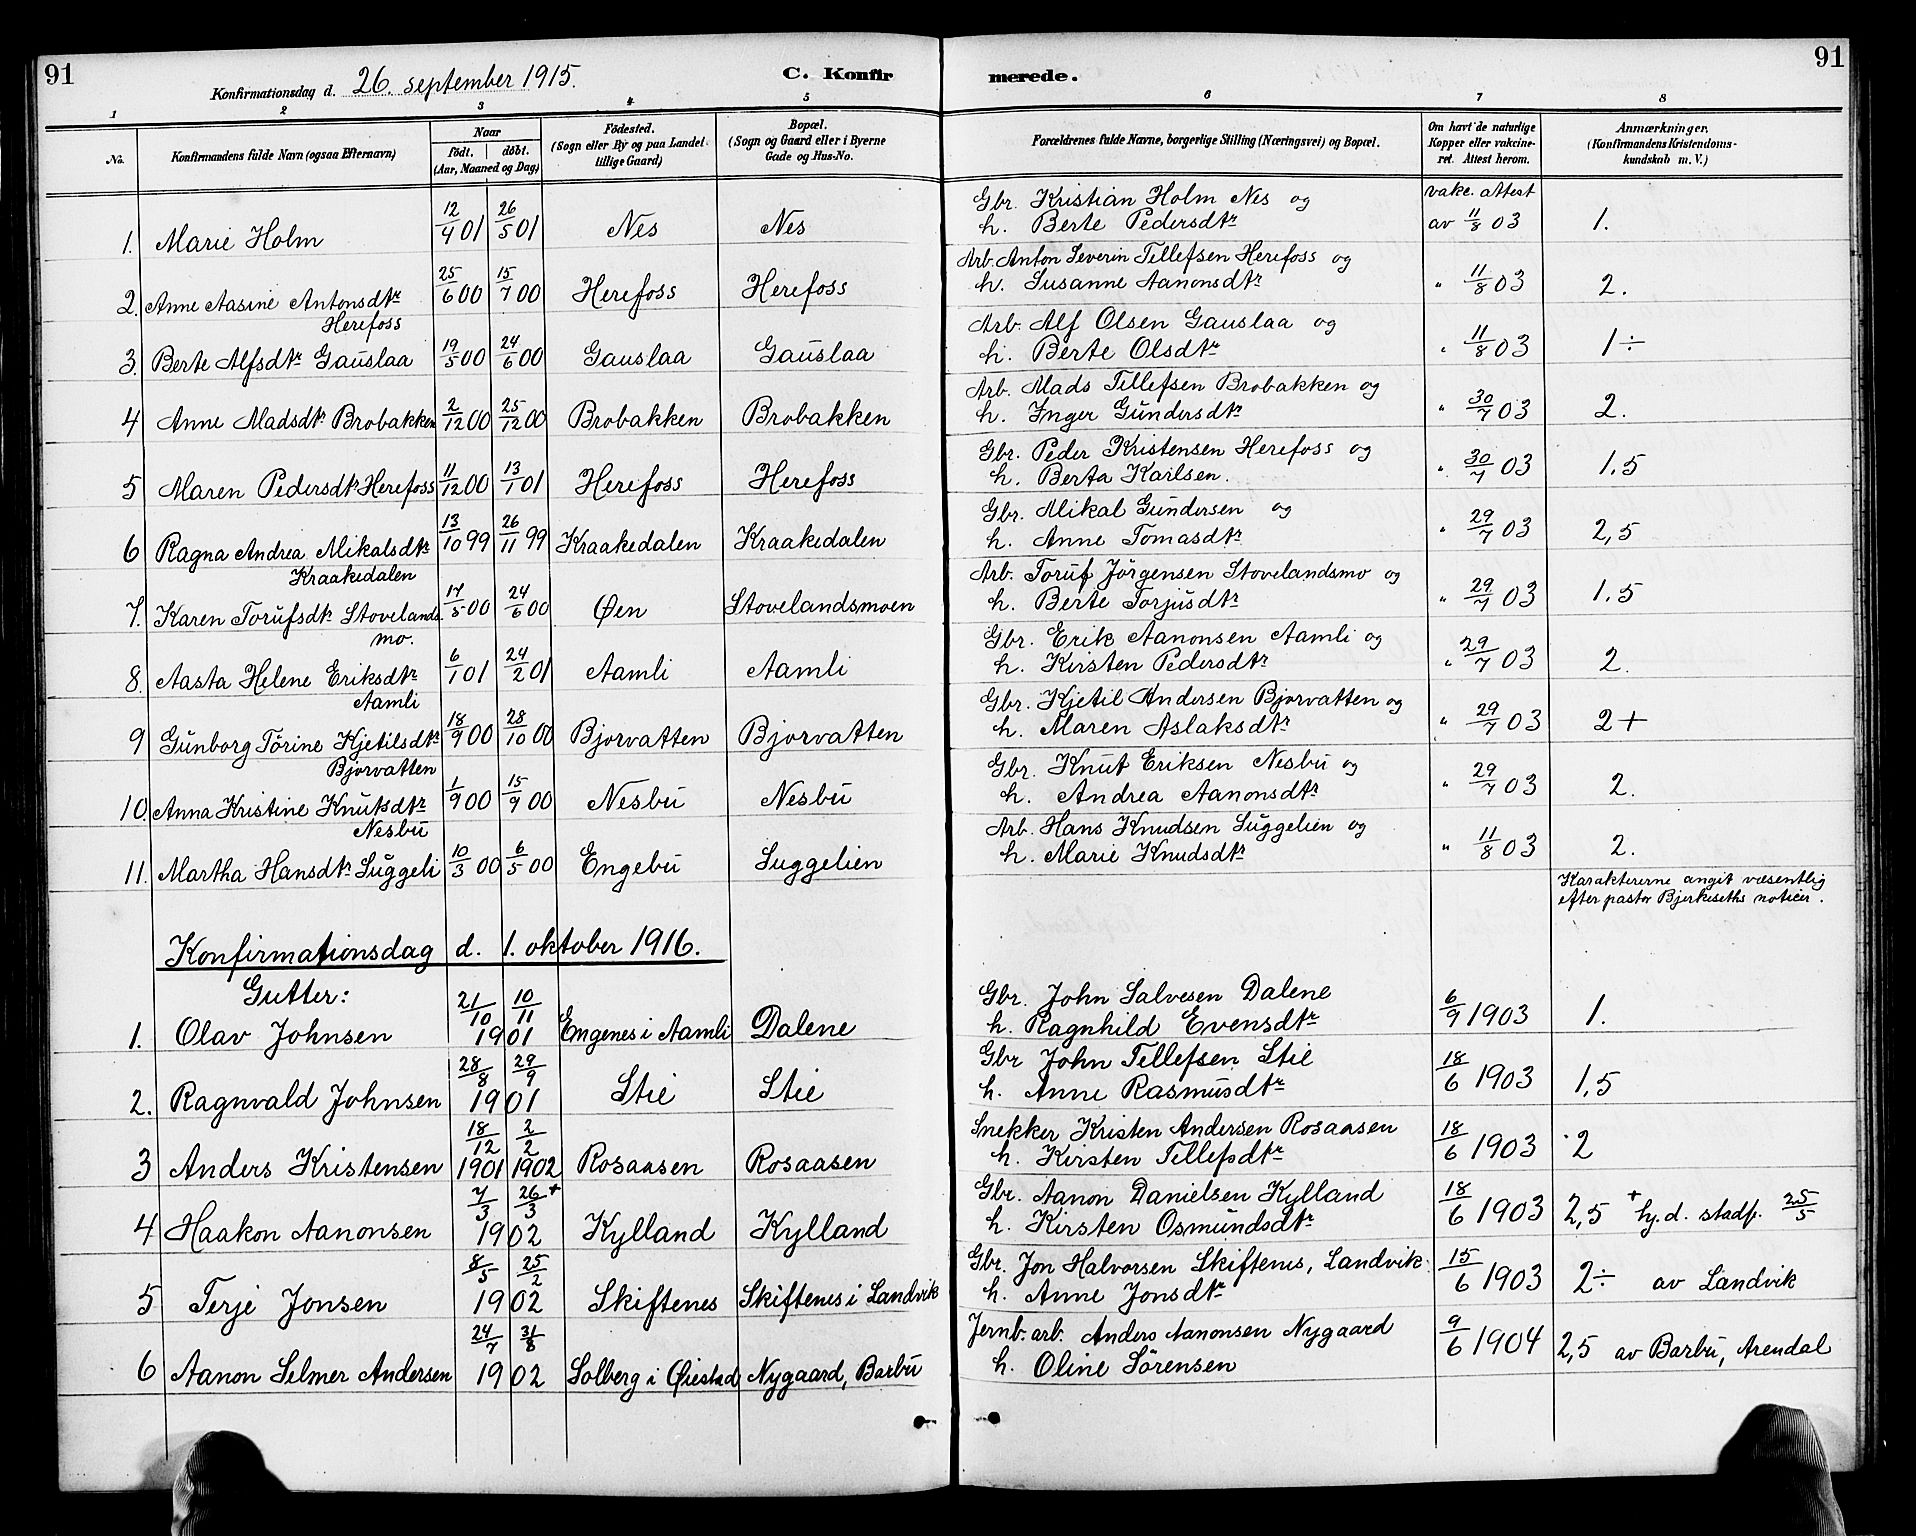 91
Konfirmationsdag d. 26. september 1915.
C. Konfirmerede.
91
1 2 3 4 5 6 7 8
No.
Konfirmandens fulde Navn (ogsaa Efternavn)
Naar
födt. | döbt.
(Aar, Maaned og Dag)
Födested.
(Sogn eller By og paa Landet tillige Gaard)
Bopæl.
(Sogn og Gaard eller i Byerne Gade og Hus-No.
Forældrenes fulde Navne, borgerlige Stilling (Næringsvei) og Bopæl.
Om havt de naturlige Kopper eller vakcineret. Attest herom.
Anmærkninger.
(Konfirmandens Kristendomskundskab m. V.)
1. Marie Holm 12/4 01 26/5 01 Nes Nes Gbr. Kristian Holm Nes og h. Berte Pedersdtr vakc. attest av 11/8 03 1.
2. Anne Aasine Antonsdtr Herefoss 25/6 00 15/7 00 Herefoss Herefoss Arb. Anton Severin Tellefsen Herefoss og h. Susanne Aanonsdtr " 11/8 03 2.
3. Berte Alfsdtr Gauslaa 19/5 00 24/6 00 Gauslaa Gauslaa Arb. Alf Olsen Gauslaa og h. Berte Olsdtr " 11/8 03 1÷
4 Anne Madsdtr Brobakken 2/12 00 25/12 00 Brobakken Brobakken Arb. Mads Tellefsen Brobakken og h. Inger Gundersdtr " 30/7 03 2.
5 Maren Pedersdtr Herefoss 11/12 00 13/1 01 Herefoss Herefoss Gbr. Peder Kristensen Herefoss og h. Berta Karlsen. " 30/7 03 1.5
6 Ragna Andrea Mikalsdtr Kraakedalen 13/10 99 26/11 99 Kraakedalen Kraakedalen Gbr. Mikal Gundersen og h. Anne Tomasdtr " 29/7 03 2,5
7. Karen Torufsdtr Stovelandsmo. 17/5 00 24/6 00 Øen Stovelandsmoen Arb. Toruf Jørgensen Stovelandsmo og h. Berte Torjusdtr " 29/7 03 1.5
8. Aasta Helene Eriksdtr Aamli 6/1 01 24/2 01 Aamli Aamli Gbr. Erik Aanonsen Aamli og h. Kirsten Pedersdtr " 29/7 03 2.
9 Gunborg Torine Kjetilsdtr Bjorvatten 18/9 00 28/10 00 Bjorvatten Bjorvatten Gbr. Kjetil Andersen Bjorvatten og h. Maren Aslaksdtr " 29/7 03 2+
10 Anna Kristine Knutsdtr Nesbu 1/9 00 15/9 00 Nesbu Nesbu Gbr. Knut Eriksen Nesbu og h. Andrea Aanonsdtr " 29/7 03 2.
11. Martha Hansdtr Suggeli 10/3 00 6/5 00 Engebu Suggelien Arb. Hans Knudsen Suggelien og h. Marie Knudsdtr " 11/8 03 2.
Karaktererne angit væsentlig
efter pastor Bjerkeseths noticer.
Konfirmationsdag d. 1. oktober 1916.
Gutter:
1. Olav Johnsen 21/10 10/11 1901 Engenes i Aamli Dalene Gbr. John Salvesen Dalene h. Ragnhild Evensdtr 6/9 1903 1.
2. Ragnvald Johnsen 28/8 29/9 1901 Stie Stie Gbr John Tellefsen Stie h. Anne Rasmusdtr 18/6 1903 1,5
3 Anders Kristensen 18/12 1901 2/2 1902 Rosaasen Rosaasen Snekker Kristen Andersen Rosaasen h. Kirsten Tellefsdtr 18/6 1903 2
4 Haakon Aanonsen 7/3 26/3 + 1902 Kylland Kylland Gbr. Aanon Danielsen Kylland h. Kirsten Osmundsdtr 18/6 1903 2,5 + hj.d. stadf. 25/5
5 Terje Jonsen 8/5 25/2 1902 Skiftenes Skiftenes i Landvik Gbr. Jon Halvorsen Skiftenes, Landvik. h. Anne Jonsdtr 15/6 1903 2÷ av Landvik
6 Aanon Selmer Andersen 24/7 31/8 1902 Solberg i Øiestad Nygaard, Barbu Jernb. arb. Anders Aanonsen Nygaard h. Oline Sörensen 9/6 1904 2,5 av Barbu, Arendal